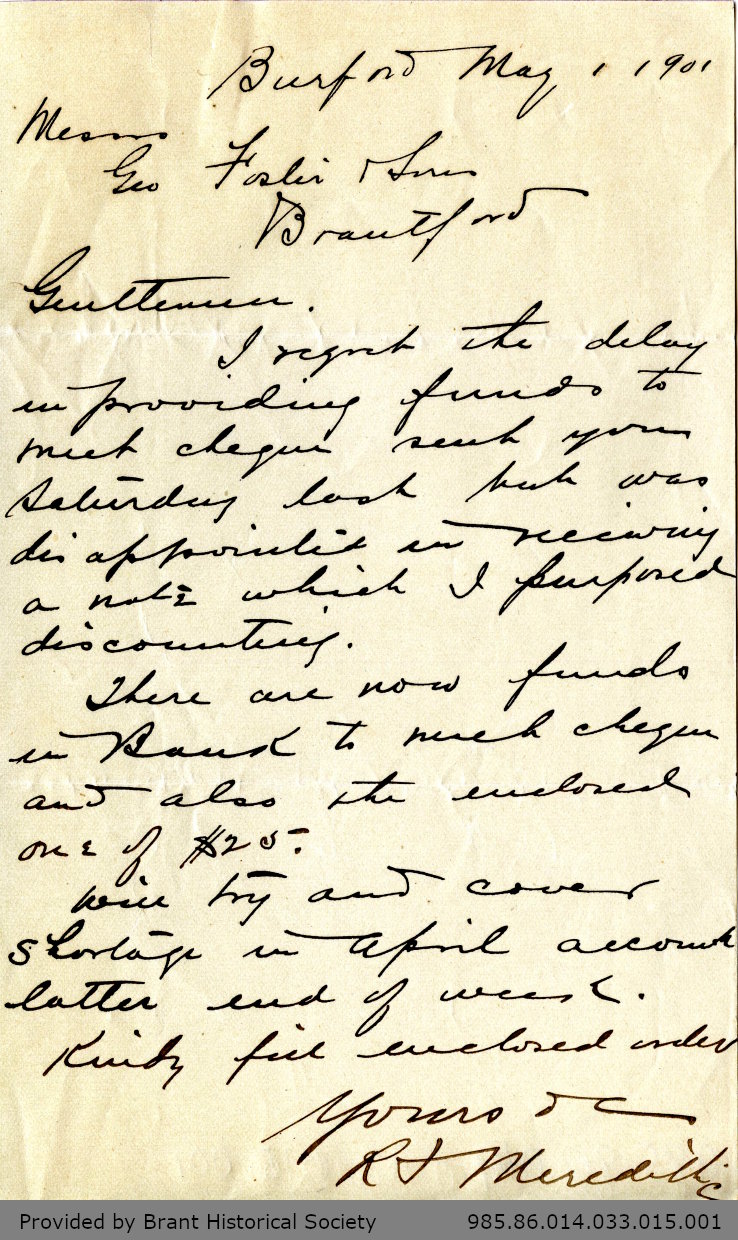 Burford May 1 1901
Messrs
Geo Foster & Sons
Brantford
Gentlemen.
I regret the delay
in providing funds to
meet cheque sent you
Saturday last but was
disappointed in receiving
a note which I purposed
discounting.
There are now funds
in Bank to meet cheque
and also the enclosed
one of $25.
Will try and cover
shortage in April account
latter end of week.
Kindly fill enclosed order
Yours &c
Meredith
Provided by Brant Historical Society 985.86.014.033.015.001